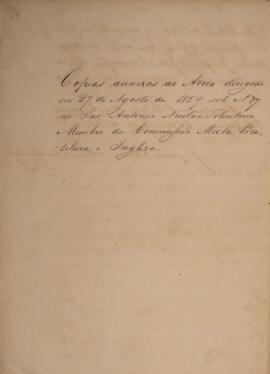 Copias annexas ao Aviso dirigido
em 27 de Agosto de 1859 sob Nº 7
ao Snr Antonio Nicoláo Tolentino
Membro da Commissão Mixta Bra-
sileira e Ingleza.